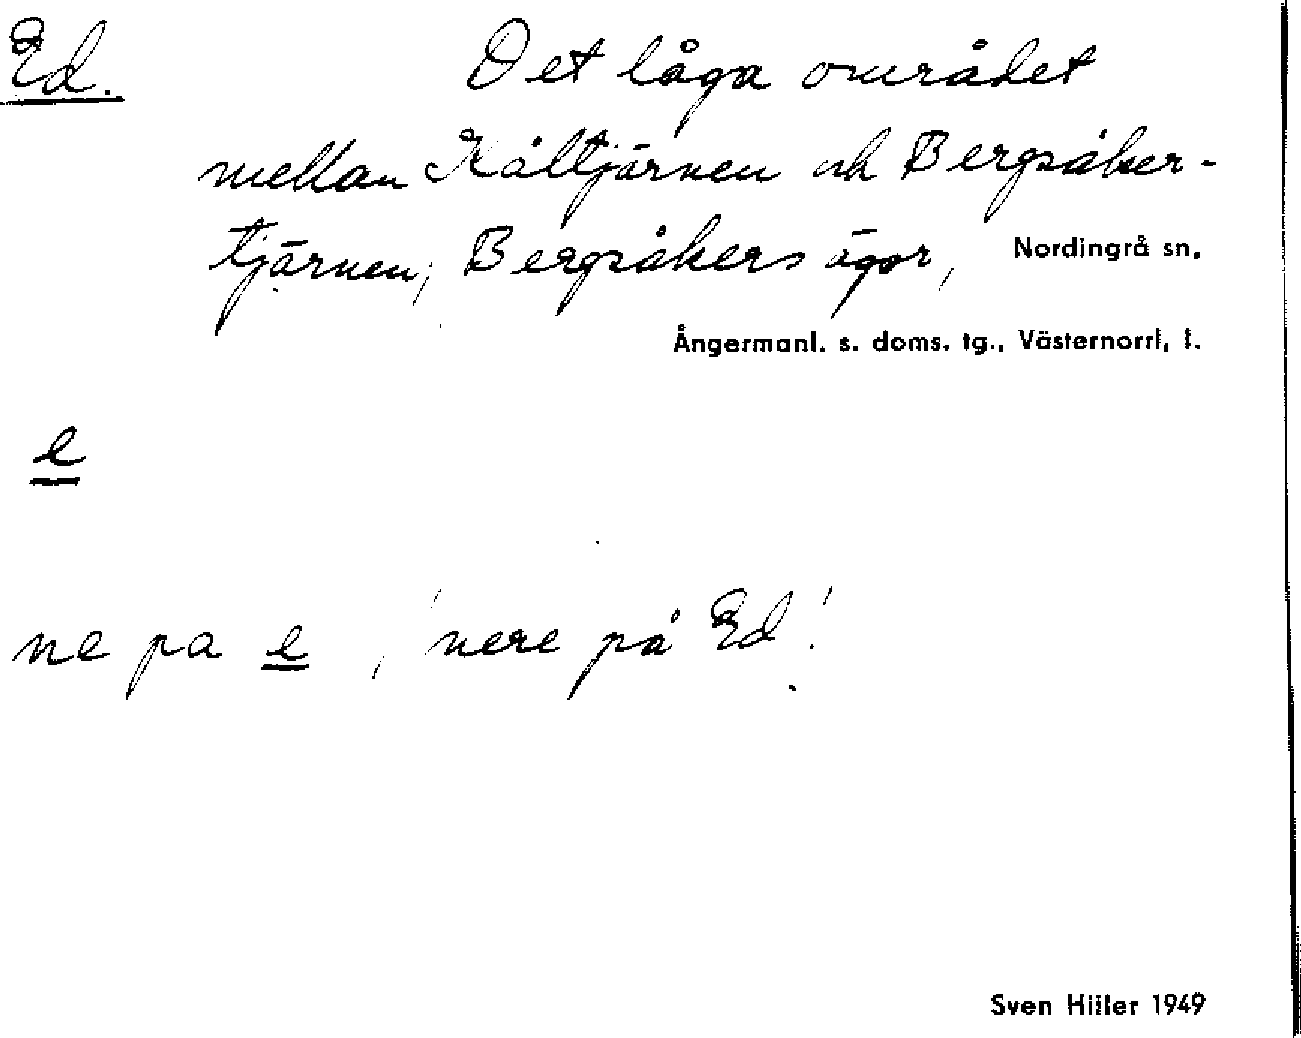 Ed. Det låga området
mellan Kåltjärnen och Bergsåker-
tjärnen, Bergsåkers ägor, Nordingrå sn,
Ångermanl. s. doms. tg., Västernorrl, l.
e
ne pa e, 'nere på Ed'.
Sven Hiller 1949